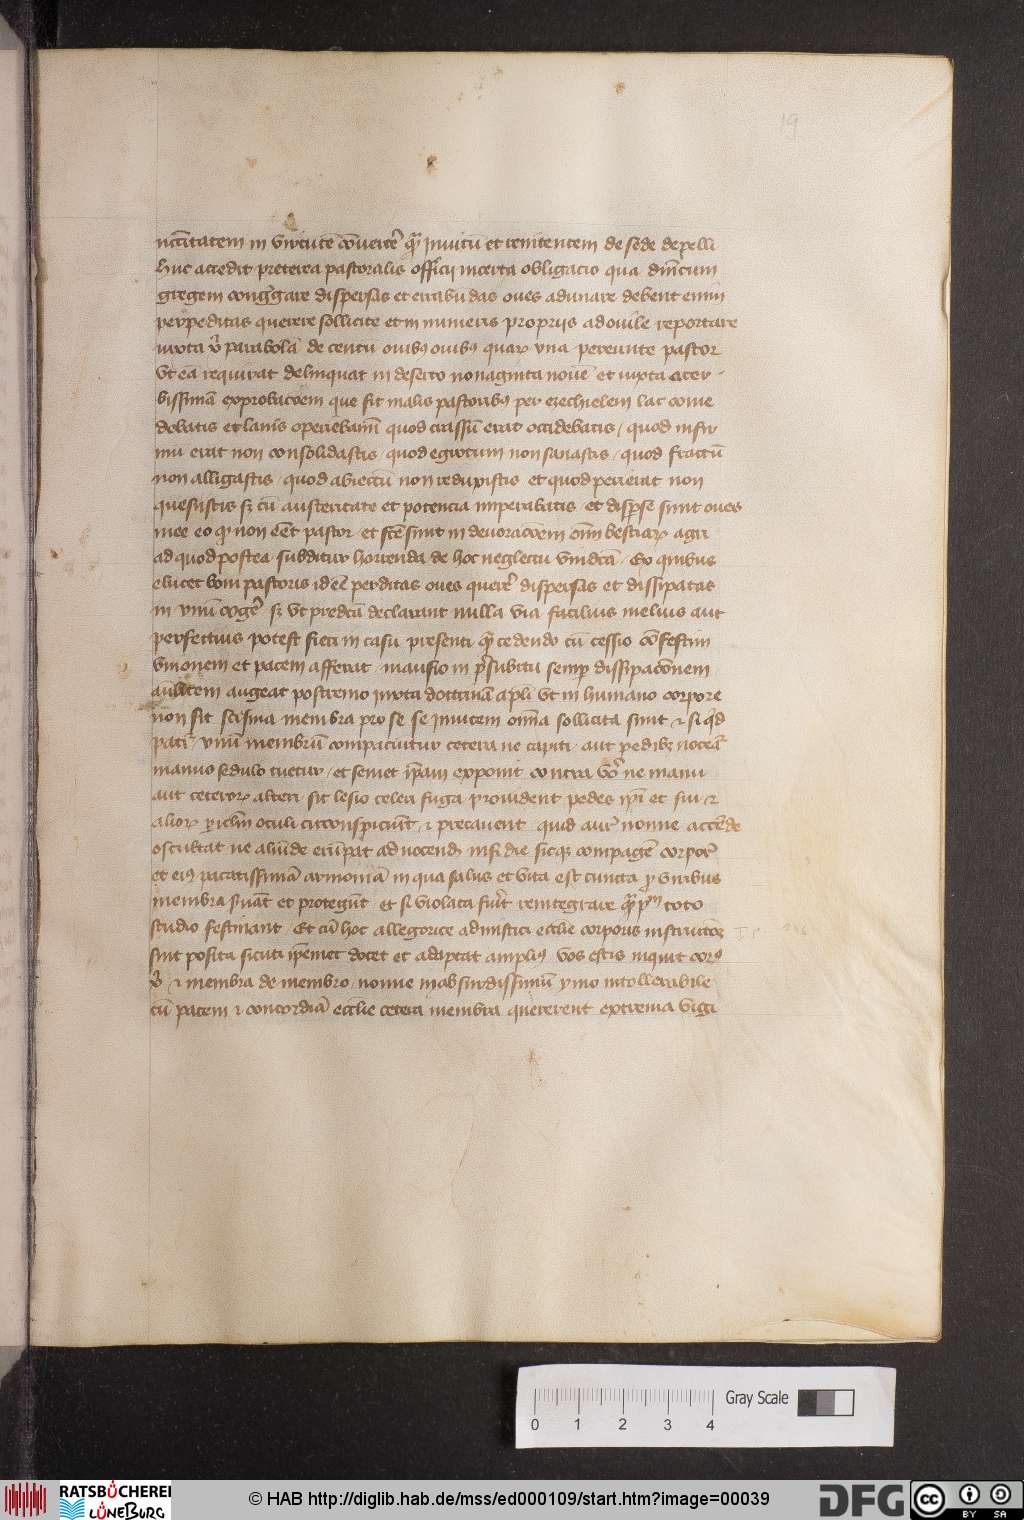 19
nc̄citatem in virtutē cōvertē q̄ invitū et renitentem de sede depelli
Huc accedit preterea pastoralis officii incerta obligacio qua dn̄icum
gregem congr̄gare dispersas et errabūdas oves adunare debent enim
perpeditas querere sollicite et in numeris propriis ad ovile reportare
iuxta v̄ parabolā de centū ovibꝰ ovibꝰ quarꝫ una pereunte pastor
ut eā requirat delinquat in deserto nonaginta novē et iuxta acer
bissimā exprobacōem que fit malis pastoribꝰ per ezechielem lac come
debatis et lanis operiebamī quod crassū erat occidebatis / quod infir
mū erat non consolidastis / quod egrotum non sanastis / quod fractū
non alligastis / quod abiectū non reduxistis et quod perierat non
quesistis sꝫ cū austeritate et potencia imperabatis / et disp̄se sunt oves
mee eo qꝫ non eēt pastor et fc̄e sunt in devoracōem om̄i bestiarꝫ agri
ad quod postea subditur horrenda de hoc neglectu vindc̄a Eo quibus
elucet boni pastoris id eē perditas oves querē dispersas et dissipatas
in unū cogē sꝫ ut predc̄a declarant nulla via facilius melius aut
perfectius potest fieri in casu presenti q̄ cedendo cū cessio cōfestim
unionem et pacem afferat mansio in p̄subitu semꝑ dissipacōnem
augeat postremo iuxta doctrinā apl̄i ut in humano corpore
non sit scisma membra pro se se invicem om̄ia sollicita sint ⁊ si q̄d
patiꞇ̄ unū membrū compaciuntur cetera ne capiti aut pedibꝫ noceā
manus sedulo tuetur / et semet ip̄am exponit contra ne manu
aut ceterorꝫ alteri sit lesio celeri fuga provident pedes ip̄i et sui ⁊
aliorꝫ oculi circonspiciūt ⁊ precavent quid aur̄ nonne accēde
oscultat ne aliūde erūpat ad nocendꝫ insidie sicqꝫ compagē corpor̄
et eiꝰ pacatissimā armoniā in qua salus et vita est cuncta ꝓ viribus
membra sūāt et protegūt et si violata fūit reintegrare q̄p̄m toto
studio festinant / Et cū hoc allegorice ad mistici ecclie corporis instructōꝫ
sint posita sicuti ip̄emet docet et adaptat ampliꝰ vos estis inquit corꝰ
⁊ membra de membro nonne inabsurdissimū ymo intollerabile
cū pacem ⁊ concordiā ecclie cetera membra quererent extrema vigi
0 1 2 3 4 Gray Scale
RATSBÜCHEREI
LÜNEBURG
© HAB http://diglib.hab.de/mss/ed000109/start.htm?image=00039
DFG
cc BY SA